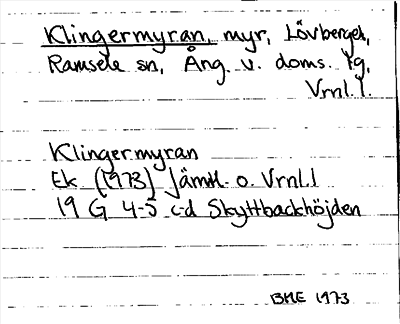 Klingermyran, myr, Lövberget,
Ramsele sn, Ång. v. doms. fg,
Vrnl.l.
Klingermyran
Ek (1973) Jämtl o. Vrnl.l
19 G 4-5 c-d Skyttbackhöjden
BME 1973